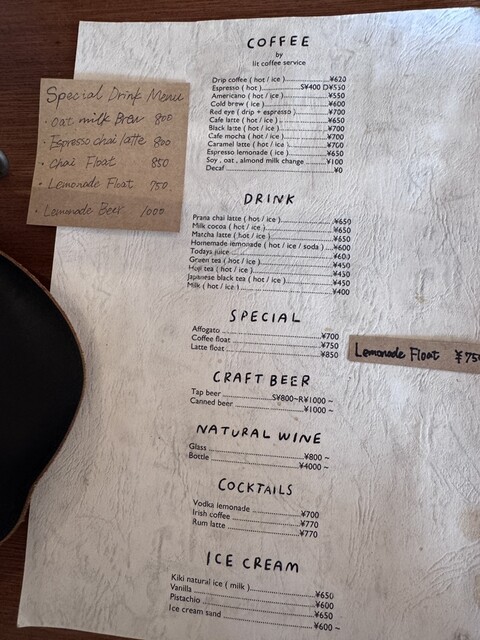 COFFEE
by
lit coffee service
Drip coffee ( hot / ice )..................¥620
Espresso ( hot )..................S¥400 D¥550
Americano ( hot / ice )..................¥550
Cold brew ( ice )..................¥600
Red eye ( drip + espresso )..................¥700
Cafe latte ( hot / ice )..................¥650
Black latte ( hot / ice )..................¥700
Cafe mocha ( hot / ice )..................¥700
Caramel latte ( hot / ice )..................¥700
Espresso lemonade ( ice )..................¥650
Soy , oat , almond milk change ..................¥100
Decaf ..................¥0
Special Drink Menu
・oat milk Brew 800
・Espresso chai latte 800
・Chai Float 850
・Lemonade Float 750
・Lemonade Beer 1000
DRINK
Prana chai latte ( hot / ice )..................¥650
Milk cocoa ( hot / ice )..................¥650
Matcha latte ( hot / ice )..................¥650
Homemade lemonade ( hot / ice / soda )..................¥600
Todays juice ..................¥600
Green tea ( hot / ice )..................¥450
Hoji tea ( hot / ice )..................¥450
Japanese black tea ( hot / ice )..................¥450
Milk ( hot / ice )..................¥400
SPECIAL
Affogato ..................¥700
Coffee float ..................¥750
Latte float ..................¥850
Lemonade Float ¥750
CRAFT BEER
Tap beer ..................S¥800~R¥1000 ~
Canned beer ..................¥1000 ~
NATURAL WINE
Glass ..................¥800 ~
Bottle ..................¥4000 ~
COCKTAILS
Vodka lemonade ..................¥700
Irish coffee ..................¥770
Rum latte ..................¥770
ICE CREAM
Kiki natural ice ( milk )..................¥650
Vanilla ..................¥600
Pistachio ..................¥650
Ice cream sand ..................¥600 ~